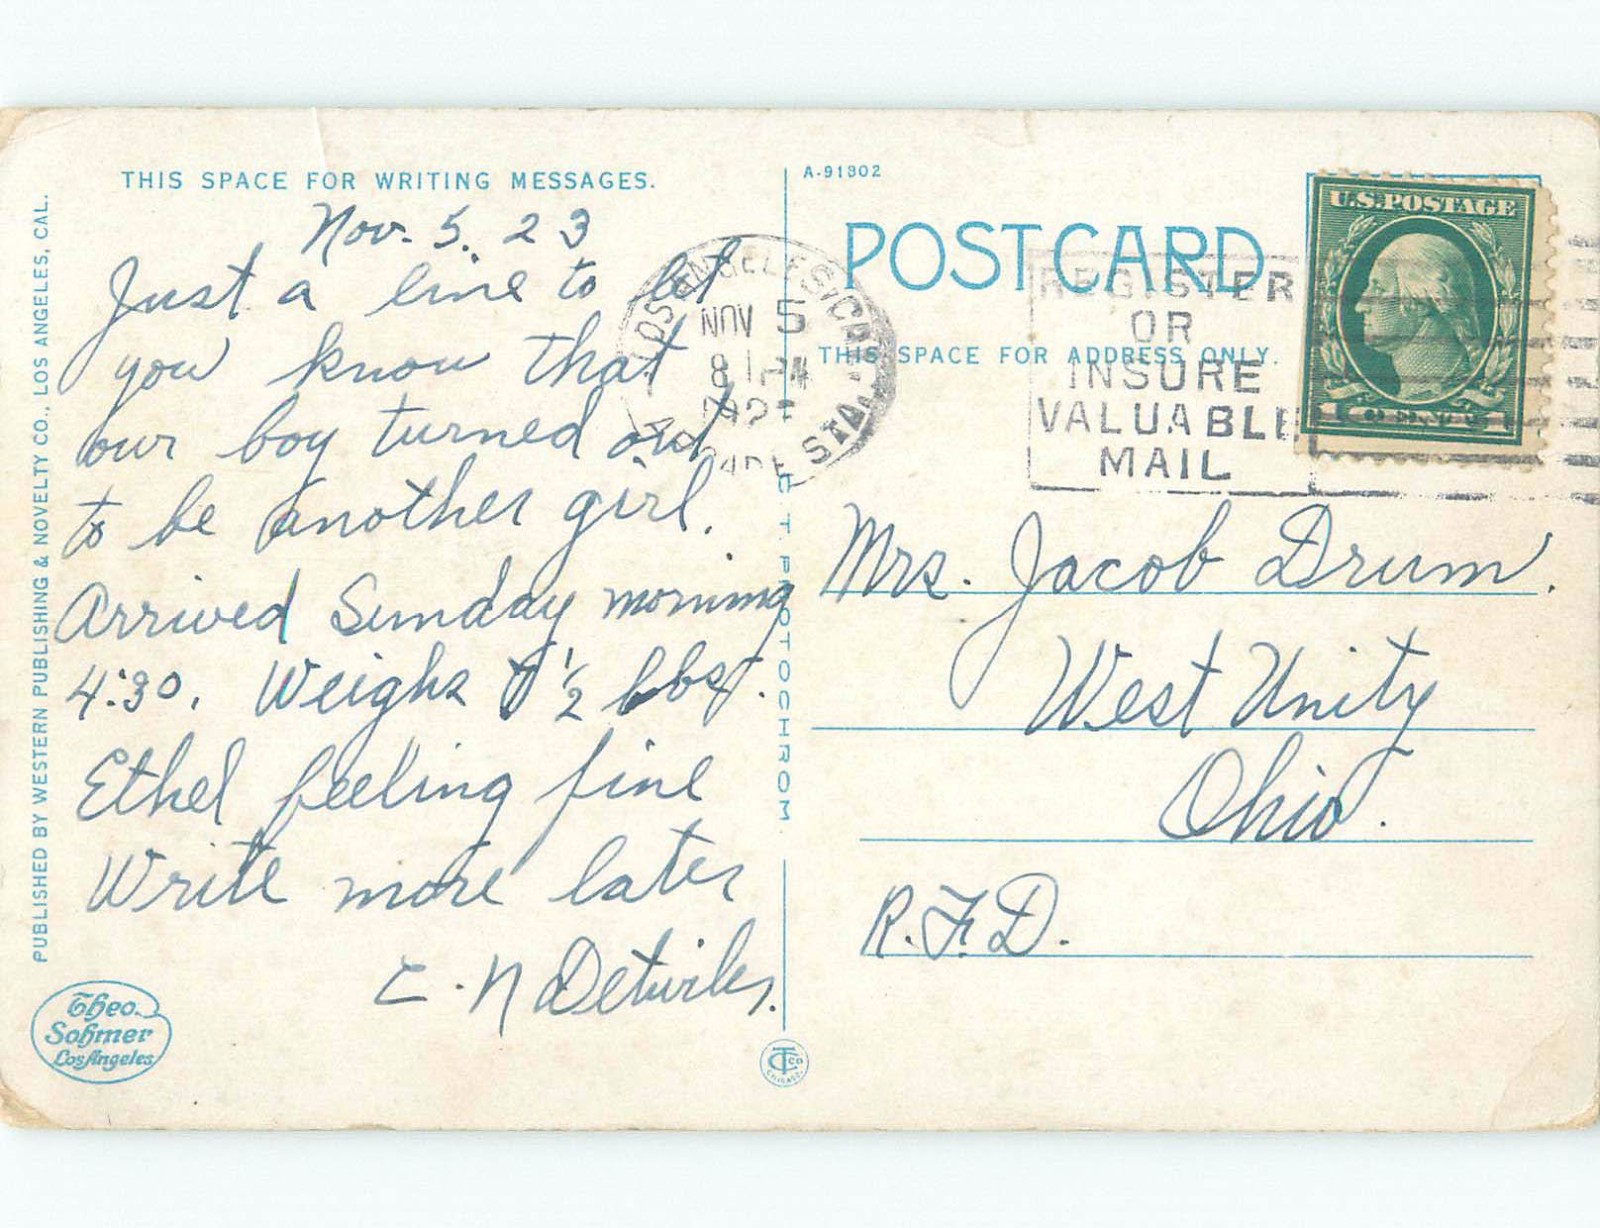 THIS SPACE FOR WRITING MESSAGES.
Nov. 5. 23
Just a line to let
you know that
our boy turned out
to be another girl.
Arrived Sunday morning
4:30. Weighs 1/2 lbs.
Ethel feeling fine
Write more later
E. N Detwiler.
PUBLISHED BY WESTERN PUBLISHING & NOVELTY CO., LOS ANGELES, CAL.
Theo.
Sohmer
Los Angeles
C. T. PHOTOCHROM
CTCo
CHICAGO
A-91802
POST CARD
THIS SPACE FOR ADDRESS ONLY.
LOS ANGELES, CAL
NOV 5
ARCADE STA.
REGISTER
OR
INSURE
VALUABLE
MAIL
U.S. POSTAGE
1 CENT 1
Mrs. Jacob Drum.
West Unity
Ohio.
R.F.D.